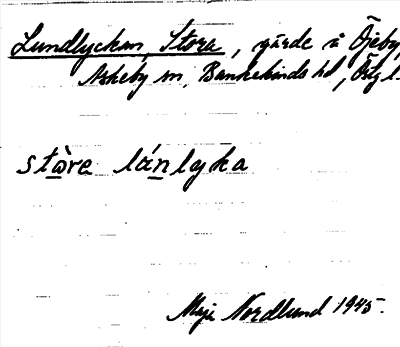 Lundlyckan, Stora, gärde å Öjeby
Askeby sn, Bankekinds hd, Östg l.
stɷ̀re lánlyka
Maja Nordlund 1945.